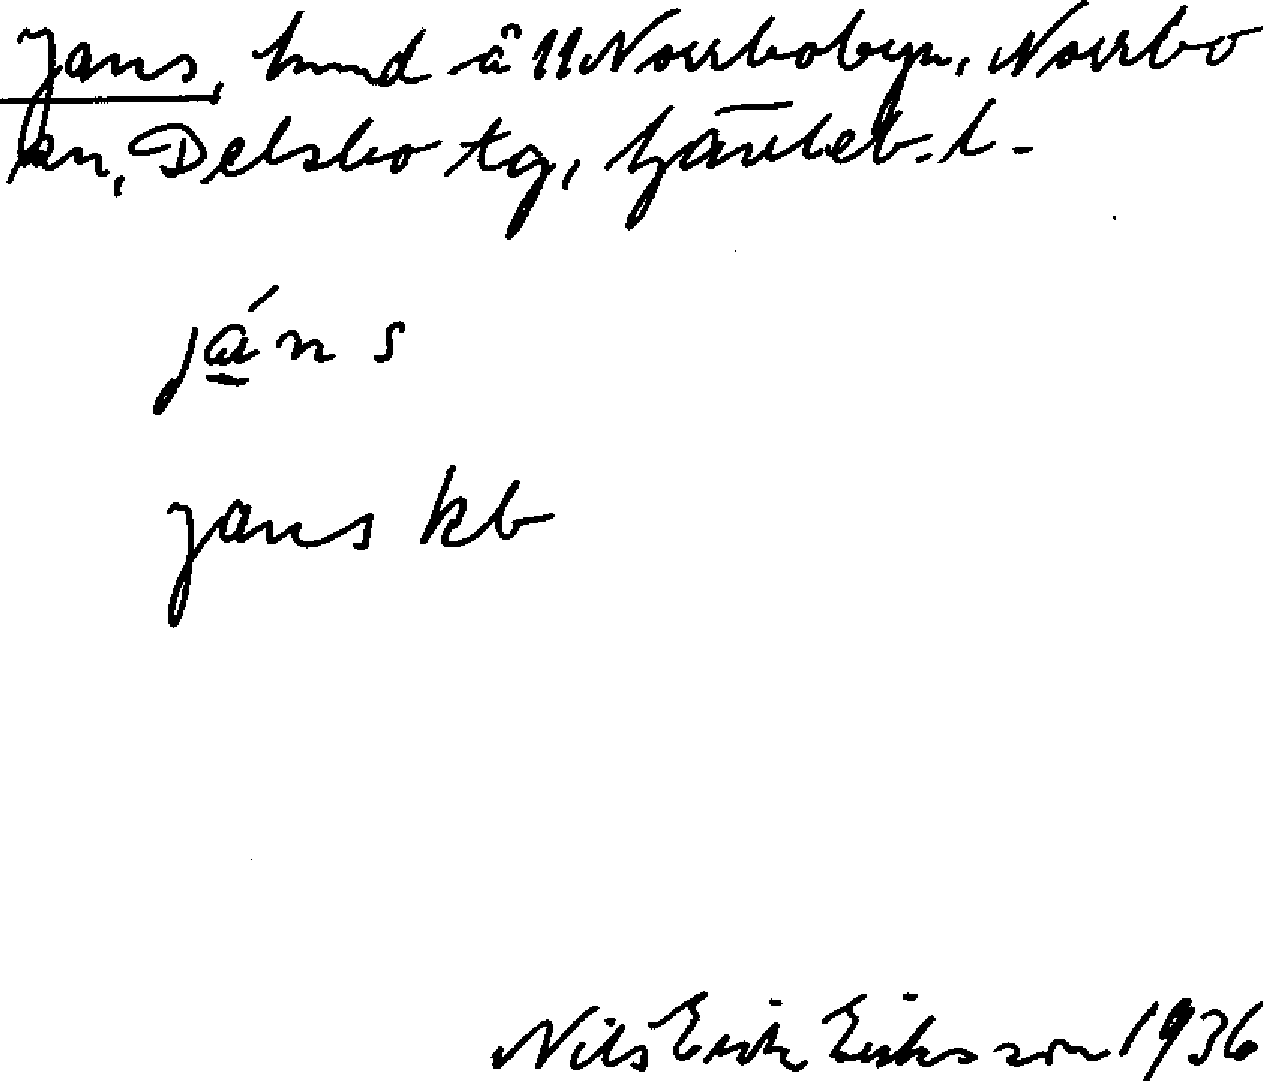 Jans, hmd å 11 Norrbobyn, Norrbo
sn, Delsbo tg, Gävleb. l.
já̱n s
jans kb
Nils Erik Eriksson 1936